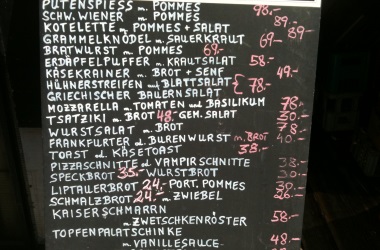 PUTENSPIESS m. POMMES 98.-
SCHW. WIENER m. POMMES 89.-
KOTELETTE m. POMMES + SALAT 89-
GRAMMELKNÖDEL m. SAUERKRAUT 69-
BRATWURST m. POMMES 69.-
ERDÄPFELPUFFER m. KRAUTSALAT 58.-
KÄSEKRAINER m. BROT + SENF 49.-
HÜHNERSTREIFEN auf BLATTSALAT { 78.-
GRIECHISCHER BAUERNSALAT
MOZZARELLA m. TOMATEN und BASILIKUM 78
TSATZIKI m. BROT 48.- GEM. SALAT 30.-
WURSTSALAT m. BROT 78.-
FRANKFURTER od. BURENWURST m. BROT 40.-
TOAST od. KÄSETOAST 38.-
PIZZASCHNITTE od. VAMPIRSCHNITTE 38.-
SPECKBROT 35.- WURSTBROT 30.-
LIPTAUERBROT 24.- PORT. POMMES 30.-
SCHMALZBROT 24.- m. ZWIEBEL 26.-
KAISERSCHMARRN
m. ZWETSCHKENRÖSTER 58.-
TOPFENPALATSCHINKE
m. VANILLESAUCE 48.-